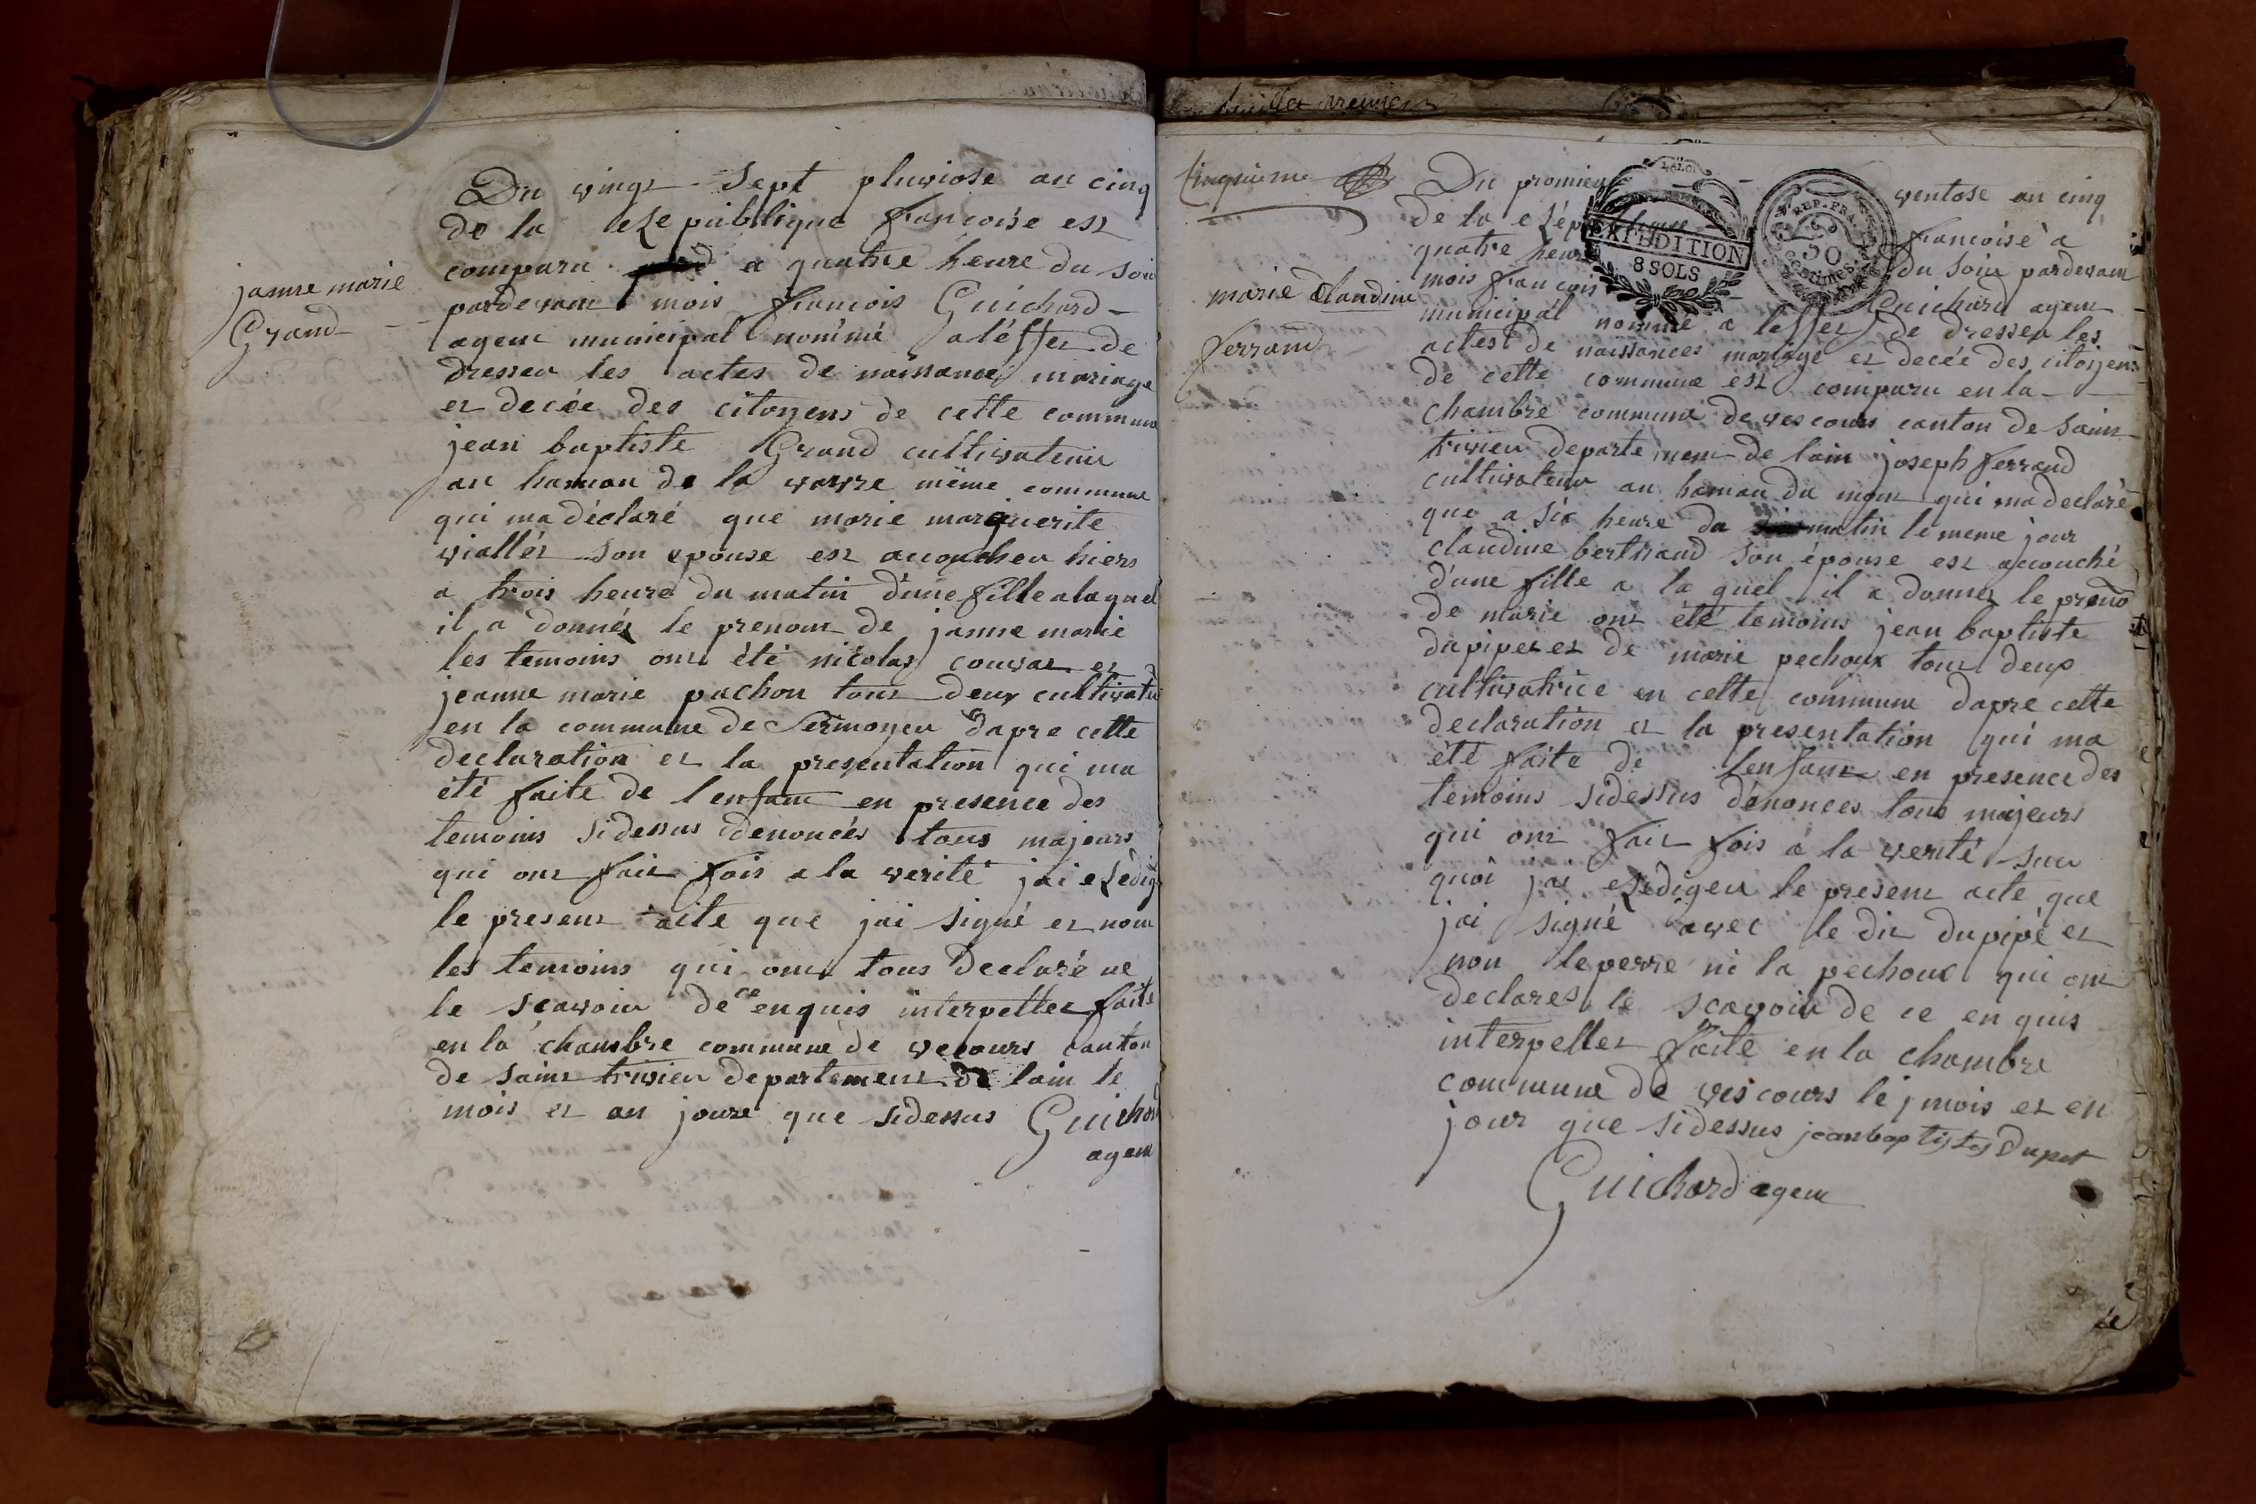 janne marie
Grand
Du vingt sept pluviose an cinq
de la Republique francoise est
comparu a quatre heure du soir
pardevant mois francois Guichard
agent municipal nommé a l'effet de
dresser les actes de naissance mariage
et decée des citoyens de cette commune
jean baptiste Grand cultivateur
au hamau de la vavre même commune
qui ma déclaré que marie marguerite
viallet son epouse est accoucheu hiers
a trois heure du matin d'une fille a laquel
il a donnéz le prenom de janne marie
les temoins ont été nicolas couvat et
jeanne marie pachon tout deux cultivatr
en la commune de Sermoyer dapre cette
declaration et la presentation qui ma
été faite de l'enfant en presence des
temoins sidessus denoncés tous majeurs
qui ont fait fois a la verité jai redigé
le present acte que jai signé et nom
les temoins qui ont tous declaré ne
le scavoir de ce enquis interpeller faits
en la chambre commune de vecours canton
de saint trivier departement de lain le
mois et an joure que sidessus Guichard
agent
feuillet premier
Cinquieme
marie Claudine
ferrand
LA LOI
EXPEDITION
8 SOLS
REP. FRA.
50
centimes
Du promier ventose an cinq
de la francoise a
quatre heure du soir pardevant
mois francois Guichard agent
municipal nommé a leffet de dresser les
actes de naissances mariage et decée des citoyens
de cette commune est comparu en la
chambre commune de vescours canton de saint
trivier departement de lain joseph ferrand
cultivateur au hamau du mont qui ma declaré
que a six heure du matin le meme jour
claudine bertrand son épouse est accouché
d'une fille a la quel il a donnez le prenō
de marie ont été temoins jean baptiste
dupipet et de marie pechoux tout deux
cultivatrice en cette commune dapre cette
declaration et la presentation qui ma
été faite de lenfant en presence des
temoins sidessus dénoncés tous majeurs
qui ont fait fois a la verité sur
quoi jai rediger le present acte que
jai signé avec le dit dupipé et
non le perre ni la pechoux qui ont
declares le scavoir de ce en quis
interpeller faite en la chambre
commune de vescours le j mois et en
jour que sidessus jean baptistes Dupet
Guichard agent